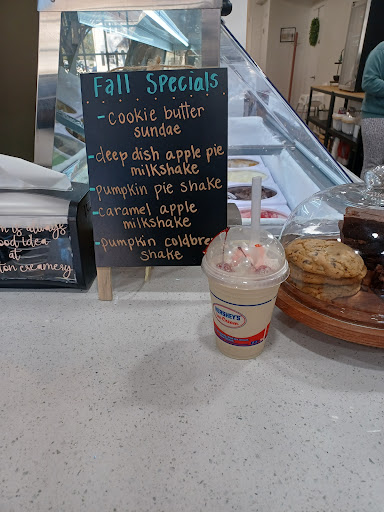 Fall Specials
- Cookie butter
sundae
- deep dish apple pie
milkshake
- Pumpkin pie shake
- caramel apple
milkshake
- pumpkin coldbre
shake
is always
good idea
at
creamery
HERSHEY'S
Ice Cream